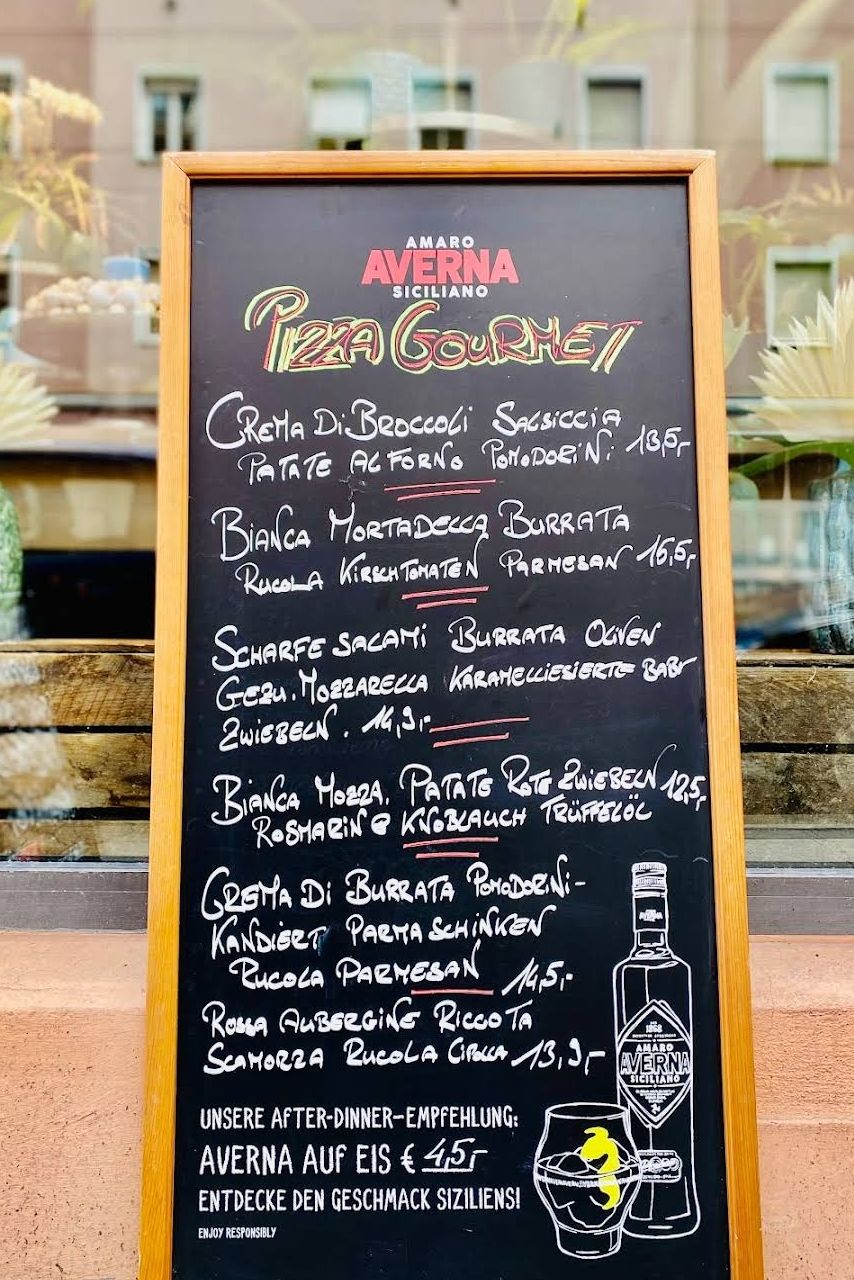 AMARO
AVERNA
SICILIANO
PIZZA GOURMET
CREMA DI BROCCOLI SALSICCIA
PATATE AL FORNO POMODORINI 13,5,-
BIANCA MORTADELLA BURRATA
RUCOLA KIRSCHTOMATEN PARMESAN 15,5,-
SCHARFE SALAMI BURRATA OLIVEN
GEZU. MOZZARELLA KARAMELLIESIERTE BABY
ZWIEBELN. 14,9,-
BIANCA MOZZA. PATATE ROTE ZWIEBELN 12,5,-
ROSMARIN & KNOBLAUCH TRÜFFELÖL
CREMA DI BURRATA POMODORINI-
KANDIERT PARMA SCHINKEN
RUCOLA PARMESAN 14,5,-
ROSSA AUBERGINE RICCOTA
SCAMORZA RUCOLA CIPOLLA 13,9,-
UNSERE AFTER-DINNER-EMPFEHLUNG:
AVERNA AUF EIS € 4,5,-
ENTDECKE DEN GESCHMACK SIZILIENS!
ENJOY RESPONSIBLY
AVERNA
1868
AMARO
AVERNA
SICILIANO